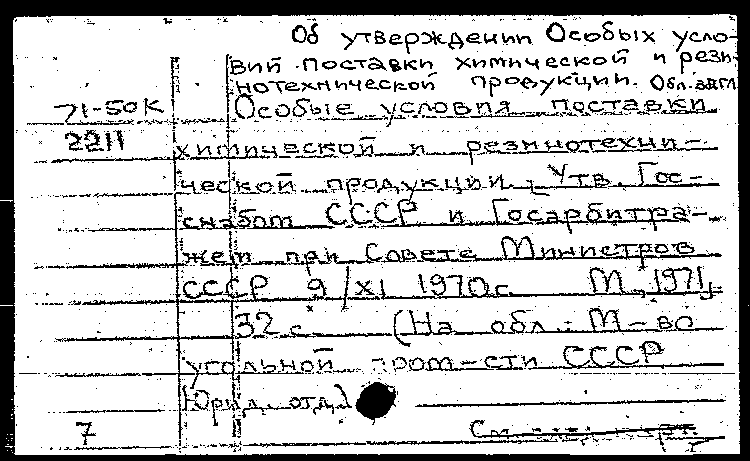 Об утверждении Особых усло-
вий поставки химической и рези-
нотехнической продукции. Обл. загл.
71-50К
Особые условия поставки
2211
химической и резинотехни-
ческой продукции. Утв. Гос-
снабом СССР и Госарбитра-
жем при Совете Министров
СССР 9/XI 1970г. М., 1971,
32 с. (На обл.: М-во
угольной пром-сти СССР
Юрид. отд.)
7
См.